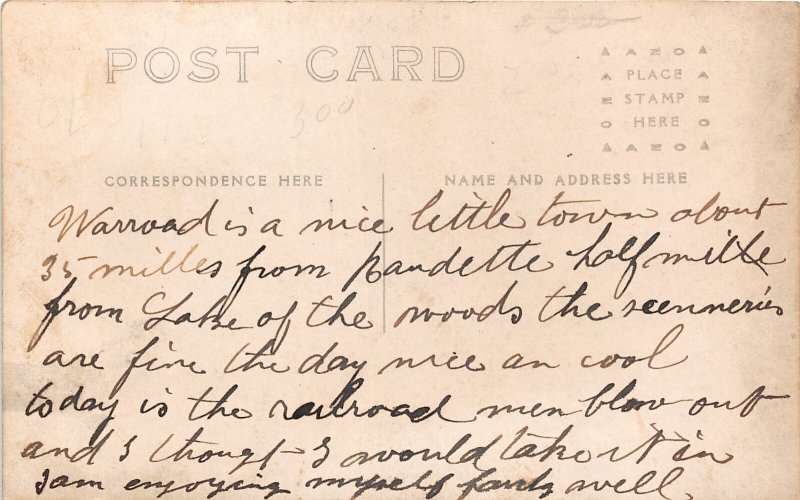 3.00
POST CARD
AZO
PLACE
STAMP
HERE
AZO
300
CORRESPONDENCE HERE
NAME AND ADDRESS HERE
Warroad is a nice little town about
35 milles from Baudette half mille
from Lake of the woods the scenneries
are fine the day nice an cool
today is the railroad men blow out
and I thougt I would take it in
I am enjoying myself fairly well